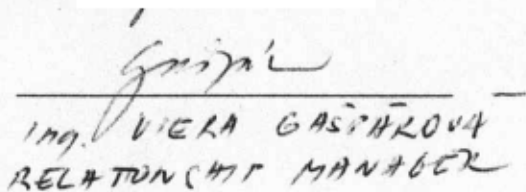 Ing. VIERA GAŠPÁROVÁ
RELATONSHIP MANAGER